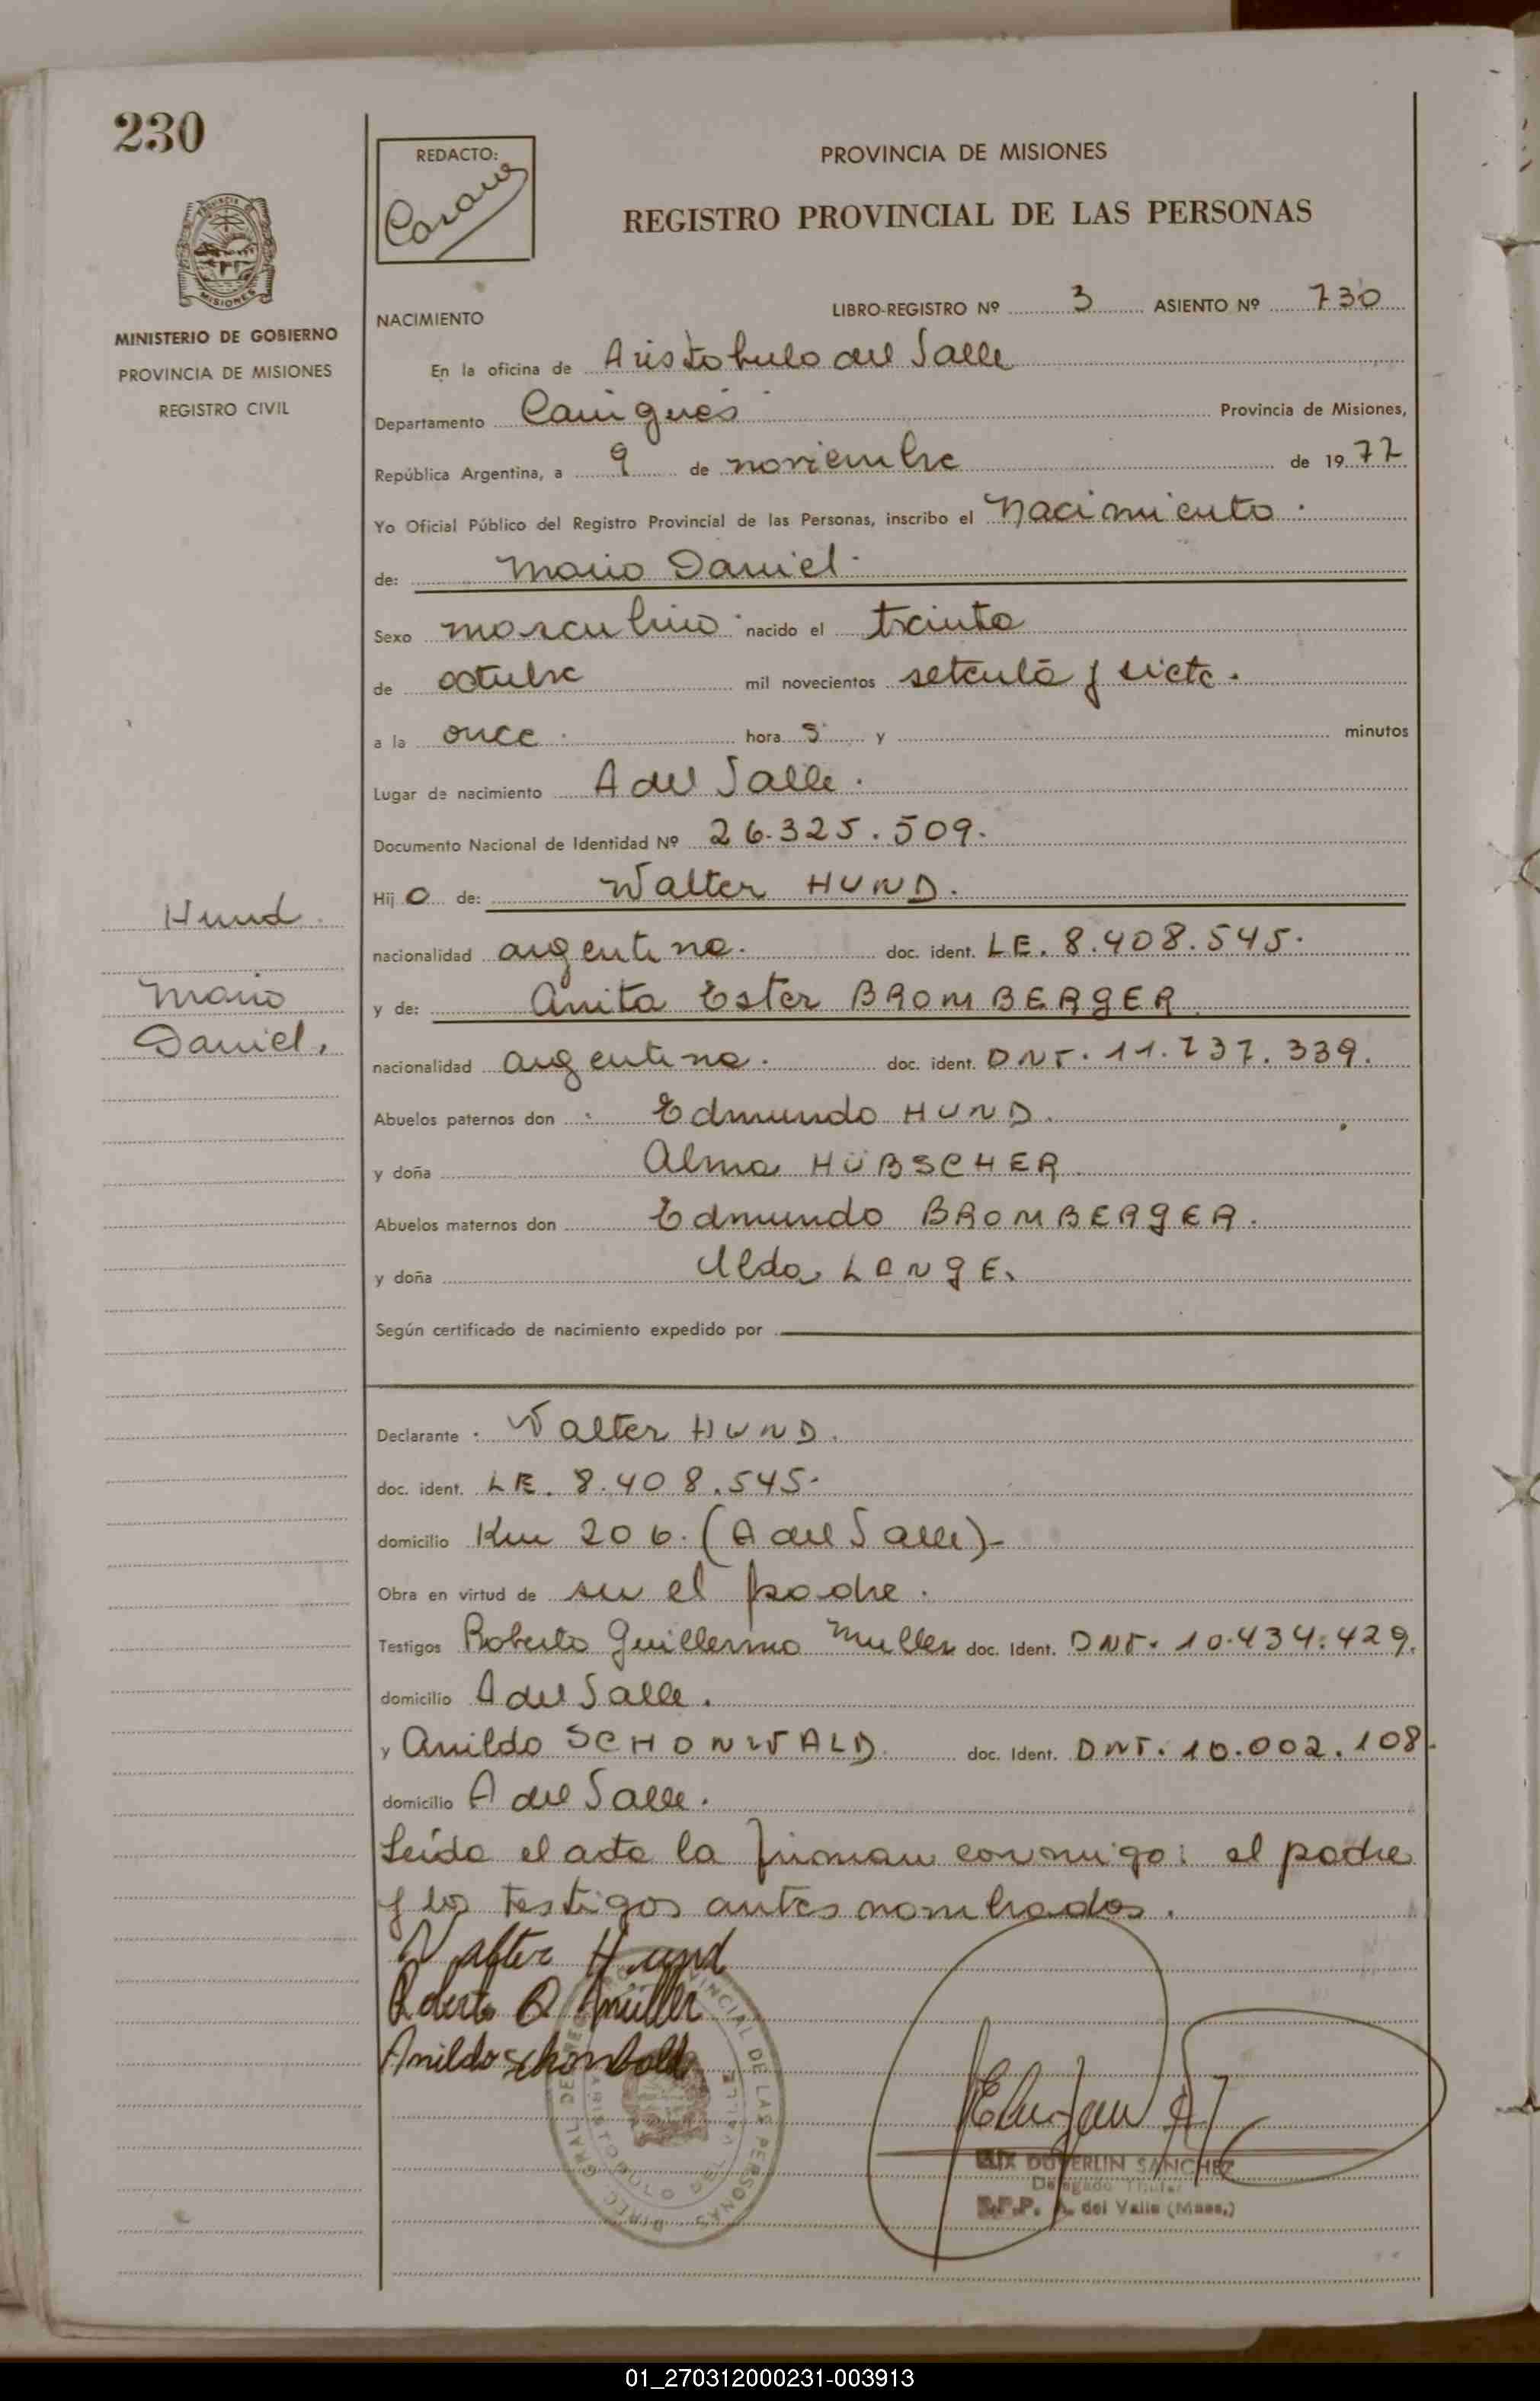 230
REDACTO:
PROVINCIA DE MISIONES
REGISTRO PROVINCIAL DE LAS PERSONAS
MISIONES
MINISTERIO DE GOBIERNO
PROVINCIA DE MISIONES
REGISTRO CIVIL
NACIMIENTO
LIBRO-REGISTRO Nº 3 ASIENTO Nº 730
En la oficina de Aristobulo del Valle
Departamento Cainguás Provincia de Misiones,
República Argentina, a 9 de noviembre de 1977
Yo Oficial Público del Registro Provincial de las Personas, inscribo el Nacimiento.
de: Mario Daniel
Sexo masculino nacido el treinta
de octubre mil novecientos setenta y siete.
a la once hora s y minutos
Lugar de nacimiento A del Valle.
Documento Nacional de Identidad Nº 26.325.509.
Hij o de: Walter HUND.
Hund
nacionalidad argentina. doc. ident. LE. 8.408.545.
Mario
y de: Anita Ester BROMBERGER
Daniel.
nacionalidad argentina. doc. ident. DNI. 11.737.339.
Abuelos paternos don : Edmundo HUND.
y doña Alma HÜBSCHER
Abuelos maternos don Edmundo BROMBERGER.
y doña Ilda LANGE.
Según certificado de nacimiento expedido por
Declarante : Walter HUND.
doc. ident. LE. 8.408.545.
domicilio Km 206. (A del Valle)-
Obra en virtud de ser el padre.
Testigos Roberto Guillermo Muller doc. Ident. DNI. 10.434.429.
domicilio A del Valle.
y Anildo SCHONWALD doc. Ident. DNI. 10.002.108.
domicilio A del Valle.
Leída el acta la firman conmigo: el padre
y los testigos antes nombrados.
Walter Hund
Roberto G Müller
Anildo Schonwald
DIREC. GRAL DE REG. PROVINCIAL DE LAS PERSONAS
ARISTOBULO DEL VALLE
DUVERLIN SANCHEZ
Delegado Titular
R.P.P. A. del Valle (Mnes.)
01_270312000231-003913